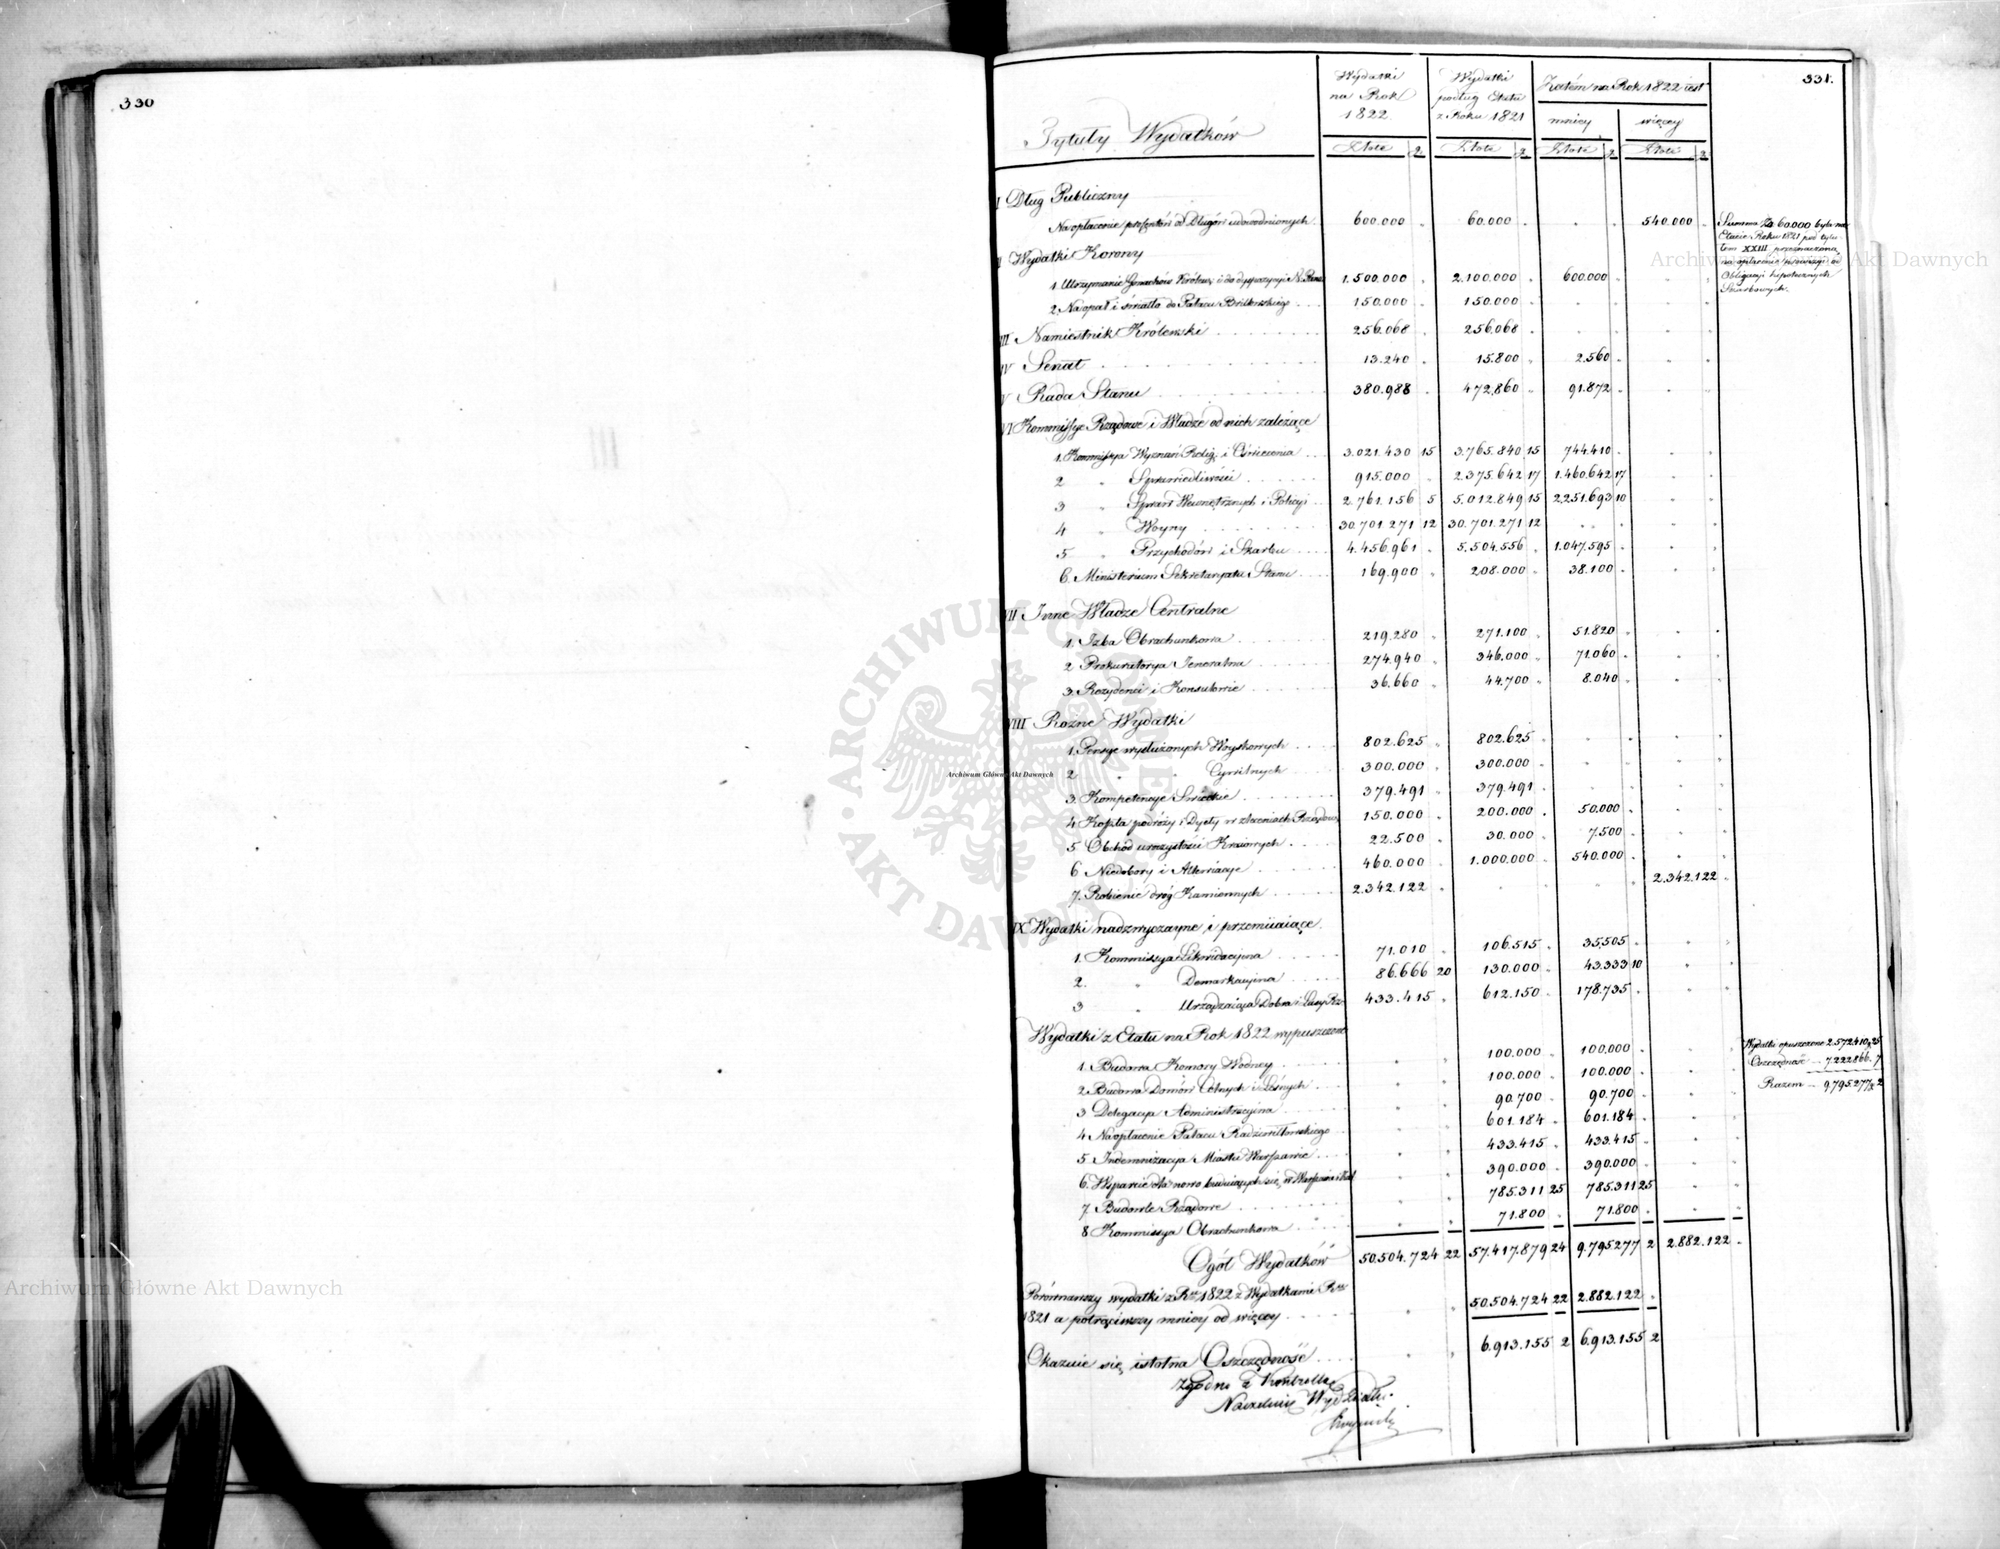 330
331.
Tytuły Wydatków
Wydatki na Rok 1822.
Wydatki podług Etatu z Roku 1821
Zatém na Rok 1822 iest
mniey
więcey
Złote g Złote g Złote g Złote g
I Dług Publiczny
Na opłacenie procentów od Długów udowodnionych 600.000 60.000 540.000
Summa Zł 60.000 była na
Etacie Roku 1821 pod tytu-
łem XXIII przeznaczona
na opłacenie prowizyi od
Obligacyi hipotecznych
Skarbowych.
II Wydatki Korony
1. Utrzymanie Gmachów Królews: i do dyspozycyi N. Pana 1.500.000 2.100.000 600.000
2. Na opał i światło do Pałacu Brilowskiego 150.000 150.000
III Namiestnik Królewski 256.068 256.068
IV Senat 13.240 15.800 2.560
V Rada Stanu 380.988 472.860 91.872
VI Kommissye Rządowe i Władze od nich zależące
1. Kommissya Wyznań Relig. i Oświecenia 3.021.430 15 3.765.840 15 744.410
2 " Sprawiedliwości 915.000 2.375.642 17 1.460.642 17
3 " Spraw Wewnętrznych i Policyi 2.761.156 5 5.012.849 15 2.251.693 10
4 " Woyny 30.701.271 12 30.701.271 12
5 " Przychodów i Skarbu 4.456.961 5.504.556 1.047.595
6. Ministerium Sekretaryatu Stanu 169.900 208.000 38.100
VII Inne Władze Centralne
1. Izba Obrachunkowa 219.280 271.100 51.820
2 Prokuratorya Jeneralna 274.940 346.000 71.060
3. Rezydenci i Konsulowie 36.660 44.700 8.040
VIII Rożne Wydatki
1. Pensye wysłużonych Woyskowych 802.625 802.625
2 " " Cywilnych 300.000 300.000
3. Kompetencye Swieckie 379.491 379.491
4 Koszta podróży i Dyety w zleceniach Rządow. 150.000 200.000 50.000
5 Obchód uroczystości Kraiowych 22.500 30.000 7.500
6 Niedobory i Alterniacye 460.000 1.000.000 540.000
7. Robienie dróg Kamiennych 2.342.122 2.342.122
IX Wydatki nadzwyczayne i przemiiaiące
1. Kommissya Likwidacyina 71.010 106.515 35.505
2. " Demarkacyina 86.666 20 130.000 43.333 10
3 " Urządzaiąca Dobra i Lasy Rz. 433.415 612.150 178.735
Wydatki z Etatu na Rok 1822 wypuszczone
1. Budowa Komory Wodney 100.000 100.000
2 Budowa Domów Celnych i Leśnych 100.000 100.000
3 Delegacya Administracyina 90.700 90.700
4 Na opłacenie Pałacu Radziwiłłowskiego 601.184 601.184
5 Indemnizacya Miastu Warszawie 433.415 433.415
6 Wsparcie dla nowo buduiących się w Warszawie 390.000 390.000
7. Budowle Rządowe 785.311 25 785.311 25
8 Kommissya Obrachunkowa 71.800 71.800
Wydatki opuszczone 2.572.410 25
Oszczędność 7.222.866. 7
Razem 9.795.277 2
Ogół Wydatków 50.504.724 22 57.417.879 24 9.795.277 2 2.882.122
Porównawszy wydatki z Rku 1822 z Wydatkami Rku
1821 a potrąciwszy mniey od więcey 50.504.724 22 2.882.122
Okazuie się istotna Oszczędność 6.913.155 2 6.913.155 2
Zgodno z Kontrollą
Naczelnik Wydziału.
Archiwum Główne Akt Dawnych
Archiwum Główne Akt Dawnych
Archiwum Główne Akt Dawnych
ARCHIWUM GŁÓWNE AKT DAWNYCH